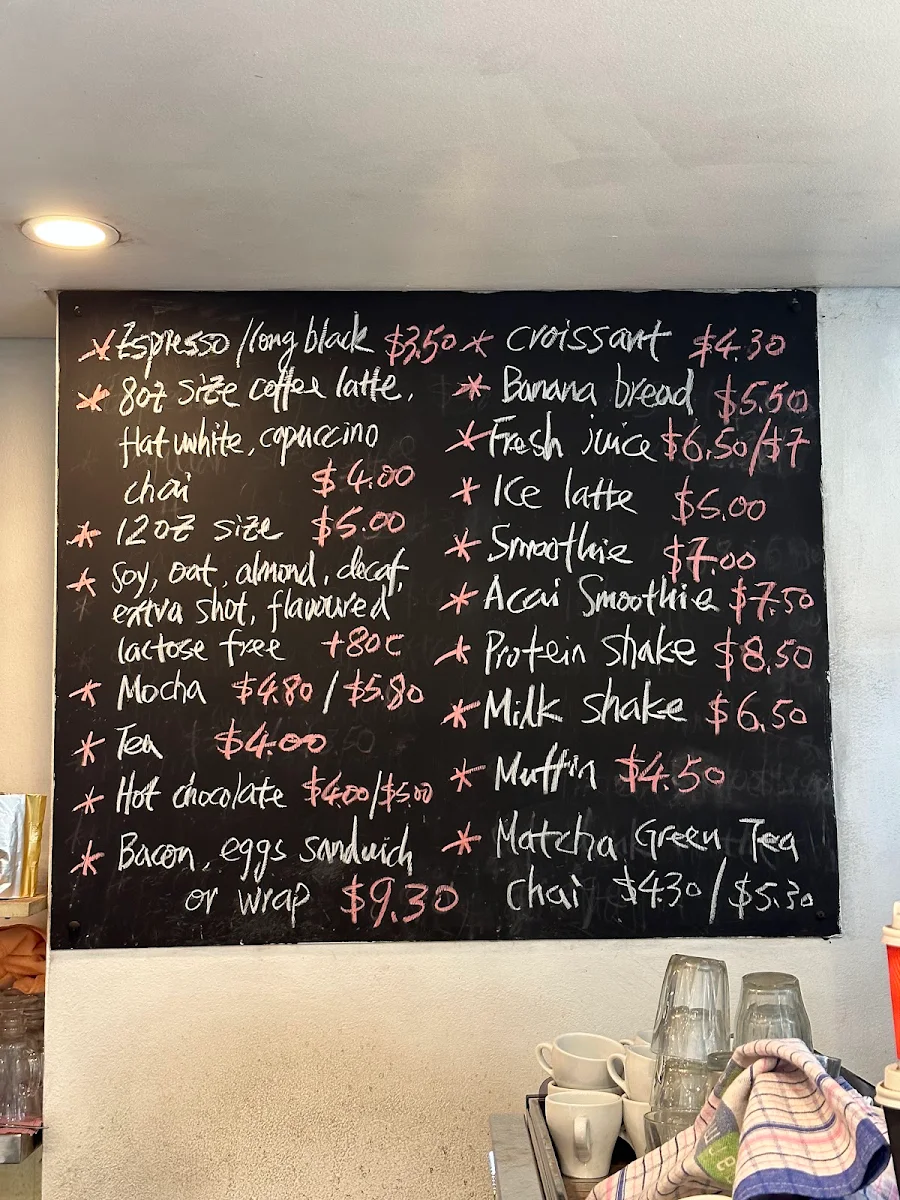 * Espresso / long black $3.50
* 8oz size coffee latte,
flat white, capuccino
chai $4.00
* 12oz size $5.00
* Soy, oat, almond, decaf,
extra shot, flavoured
lactose free +80c
* Mocha $4.80 / $5.80
* Tea $4.00
* Hot chocolate $4.00/$5.00
* Bacon, eggs sandwich
or wrap $9.30
* croissant $4.30
* Banana bread $5.50
* Fresh juice $6.50/$7
* Ice latte $5.00
* Smoothie $7.00
* Acai Smoothie $7.50
* Protein shake $8.50
* Milk shake $6.50
* Muffin $4.50
* Matcha Green Tea
Chai $4.30 / $5.30